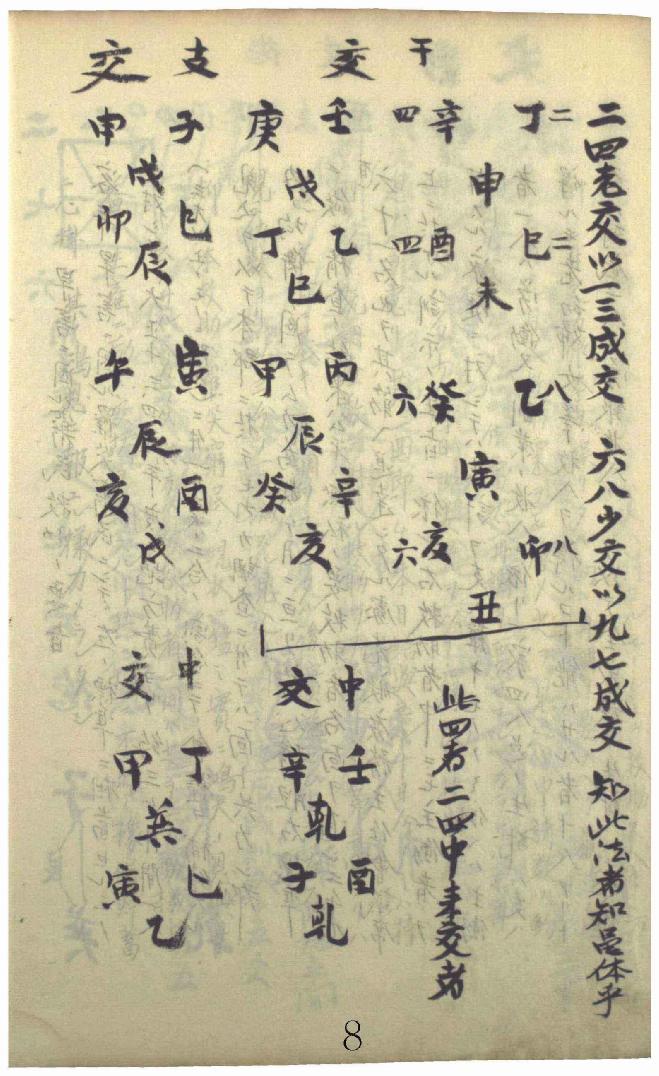 二四老交以一三成交 六八少交以九七成交 知此法者知呂休乎
二 二 八 八
丁 巳 乙 卯
申 未 寅 丑
辛 酉 癸 亥
四 四 六 六
此四者二四中来交者
干
交 壬 乙 丙 辛
戊 巳 辰 亥
庚 丁 甲 癸
中 壬 酉
乾 乾
交 辛 子
支 子 巳 寅 酉
戌 辰 辰 戌
交 申 卯 午 亥
中 丁 巳
乙
交 甲 寅
8